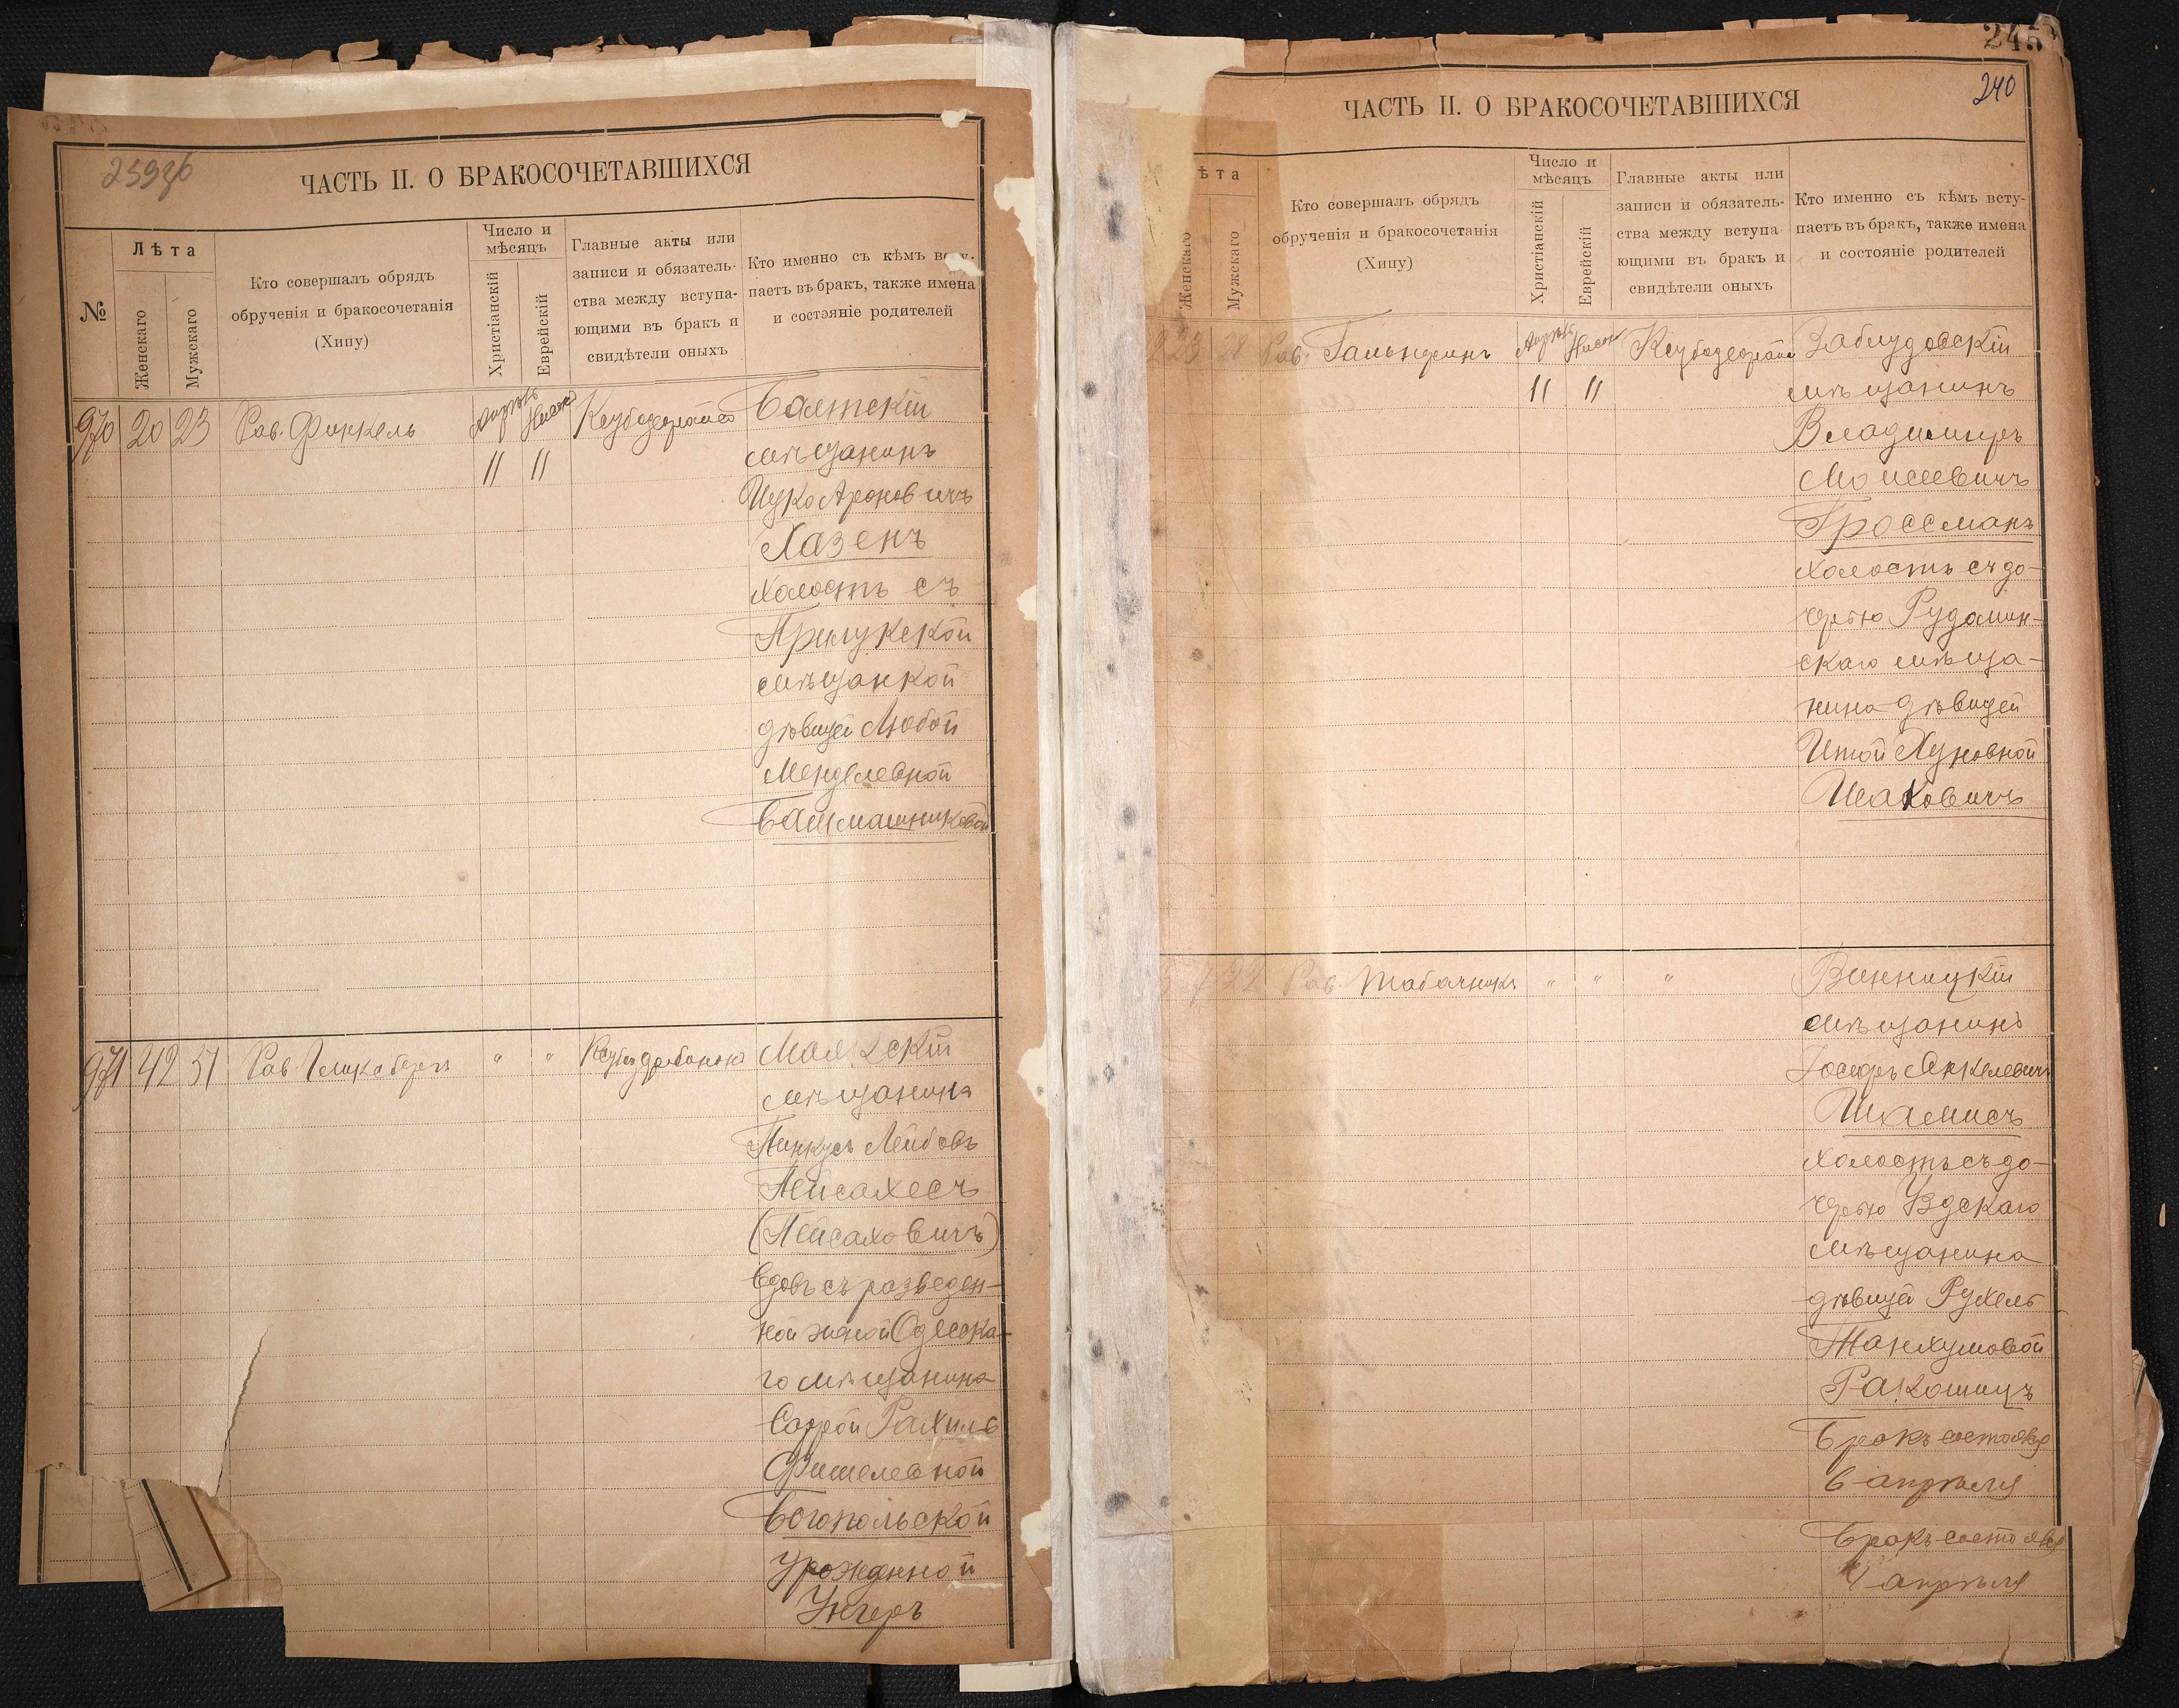 239об
ЧАСТЬ II. О БРАКОСОЧЕТАВШИХСЯ
№
Лѣта
Женскаго
Мужскаго
Кто совершалъ обрядъ
обрученія и бракосочетанія
(Хипу)
Число и
мѣсяцъ
Христіанскій
Еврейскій
Главные акты или
записи и обязатель-
ства между вступа-
ющими въ бракъ и
свидѣтели оныхъ
Кто именно съ кѣмъ всту-
паетъ въ бракъ, также имена
и состэяніе родителей
970 20 23 Рав. Финкель Апрѣль Нисонъ Балтскій
11 11 мѣщанинъ
Ицко Ароновичъ
Хазенъ
холостъ съ
Прилукской
мѣщанкой
дѣвицей Любой
Менделевной
Башмашниковой
971 42 51 Рав. " " Маякскій
мѣщанинъ
Пинкусъ Лейбовъ
Пейсахесъ
(Пейсаховичъ)
вдовъ съ разведен-
ной женой Одесска-
го мѣщанина
Саррой Рахиль
Фишелевной
Богопольской
урожденной
Унгеръ
245
240
ЧАСТЬ II. О БРАКОСОЧЕТАВШИХСЯ
ѣта
Женскаго
Мужскаго
Кто совершалъ обрядъ
обрученія и бракосочетанія
(Хипу)
Число и
мѣсяцъ
Христіанскій
Еврейскій
Главные акты или
записи и обязатель-
ства между вступа
ющими въ бракъ и
свидѣтели оныхъ
Кто именно съ кѣмъ всту-
паетъ въ бракъ, также имена
и состояніе родителей
23 28 Рав. Гальперинъ Апрѣль Нисонъ Заблудовскій
11 11 мѣщанинъ
Владимиръ
Моисеевичъ
Гроссманъ
холостъ съ до-
черью Рудомин-
скаго мѣща-
нина дѣвицей
Итой Хуновной
Исаковичъ
22 Рав. Табачникъ " " " Винницкій
мѣщанинъ
Іосифъ Янкелевичъ
Шамисъ
холостъ съ до-
черью Удскаго
мѣщанина
дѣвицей Рухель
Танхумовой
Ракошицъ
Бракъ состоялся
6 апрѣля
Бракъ состоялся
4 апрѣля